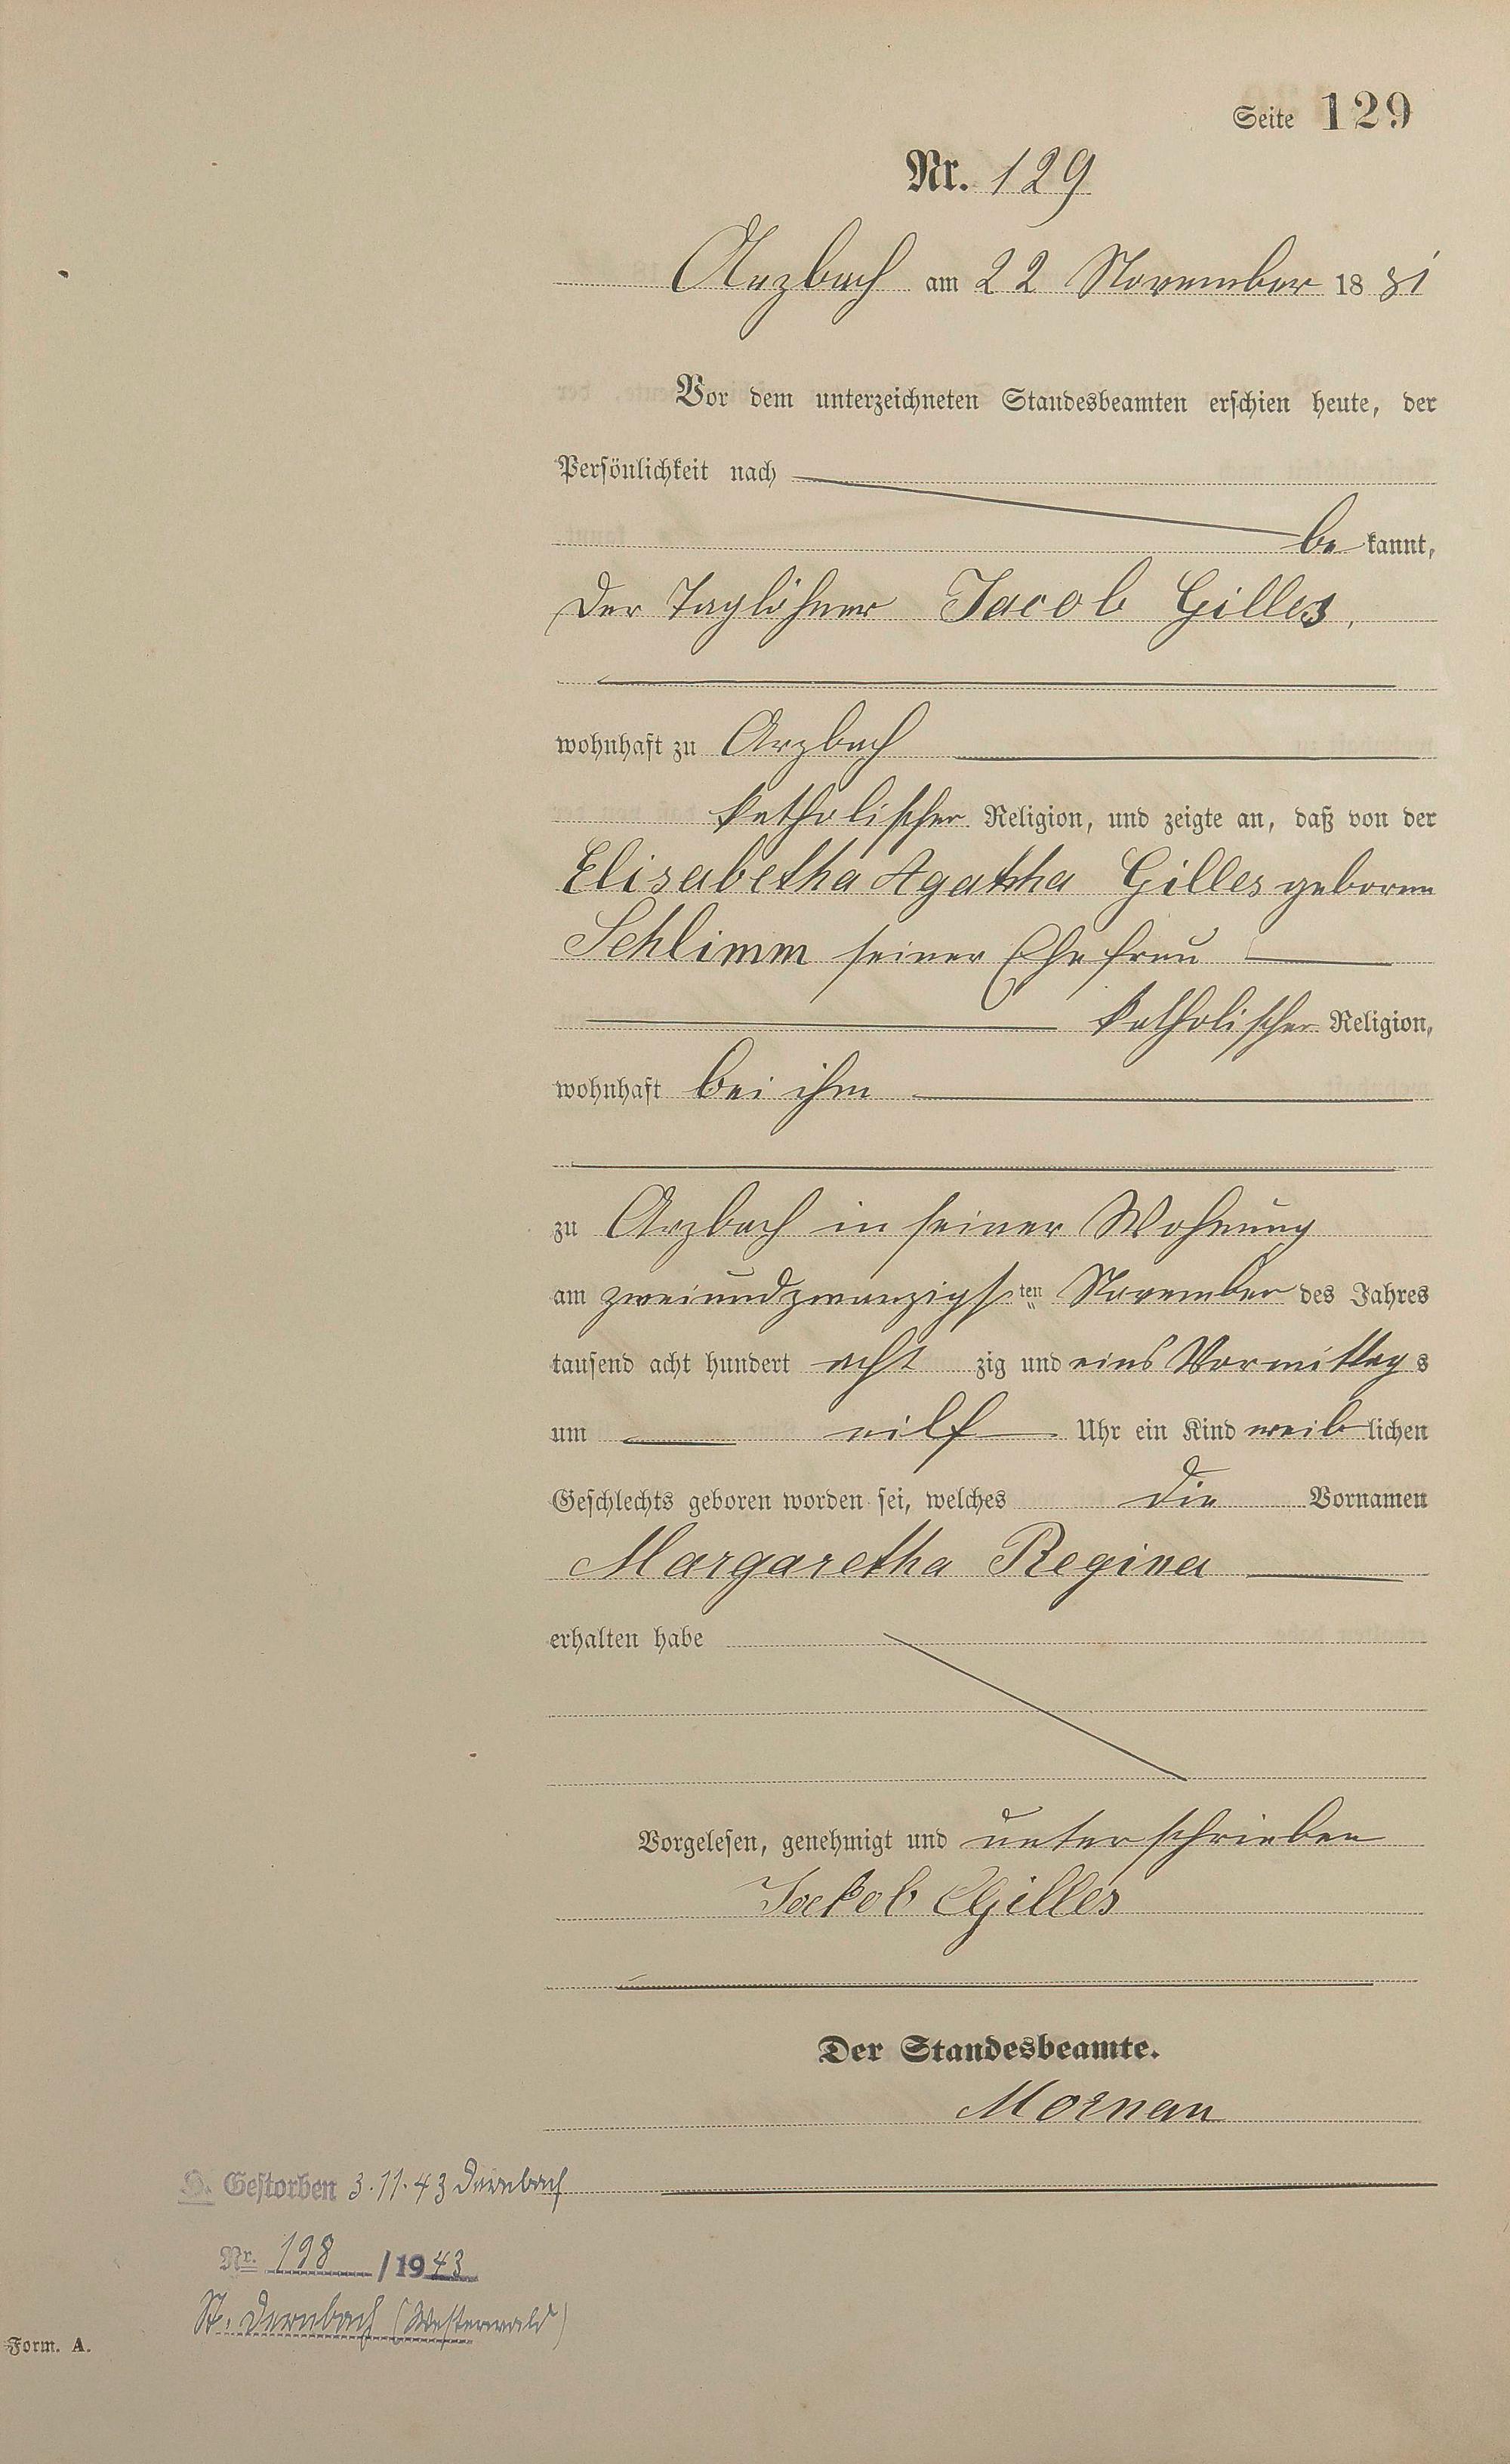 Seite 129
Nr. 129
Arzbach am 22 November 1881
Vor dem unterzeichneten Standesbeamten erschien heute, der
Persönlichkeit nach
be kannt,
der Taglöhner Jacob Gilles,
wohnhaft zu Arzbach
katholischer Religion, und zeigte an, daß von der
Elisabetha Agatha Gilles geboren
Schlimm seiner Ehefrau
katholischer Religion,
wohnhaft bei ihm
zu Arzbach in seiner Wohnung
am zweiundzwanzigsten November des Jahres
tausend acht hundert acht zig und eins Vormittags
um eilf Uhr ein Kind weiblichen
Geschlechts geboren worden sei, welches die Vornamen
Margaretha Regina
erhalten habe
Vorgelesen, genehmigt und unterschrieben
Jakob Gilles
Der Standesbeamte.
Gestorben 3.11.43 Dernbach
Nr. 198 /1943
St. Dernbach (Westerwald)
Form. A.